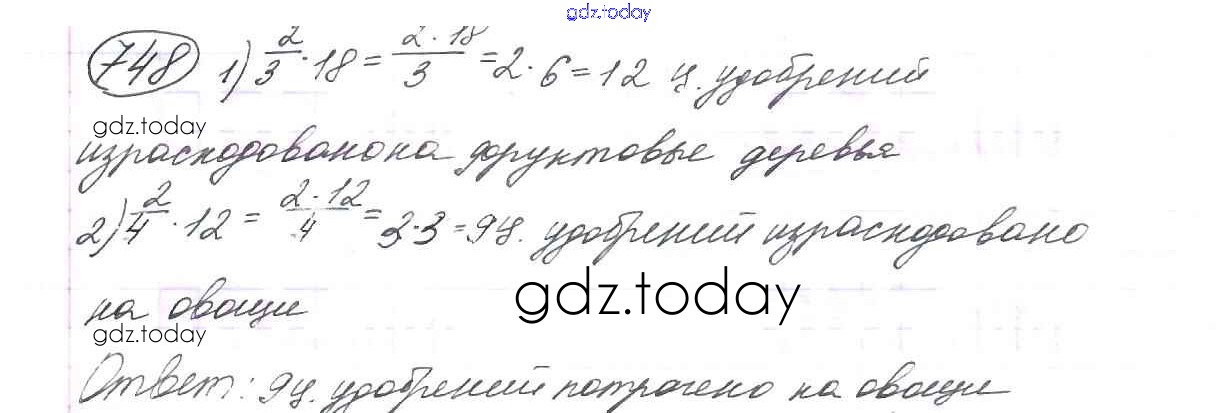 gdz.today
748 1) 2/3 · 18 = 2 · 18/3 = 2 · 6 = 12 ц. удобрений
gdz.today
израсходовано на фруктовые деревья
2) 2/4 · 12 = 2 · 12/4 = 3 · 3 = 9 ц. удобрений израсходовано
на овощи
gdz.today
gdz.today
Ответ: 9 ц. удобрений потрачено на овощи